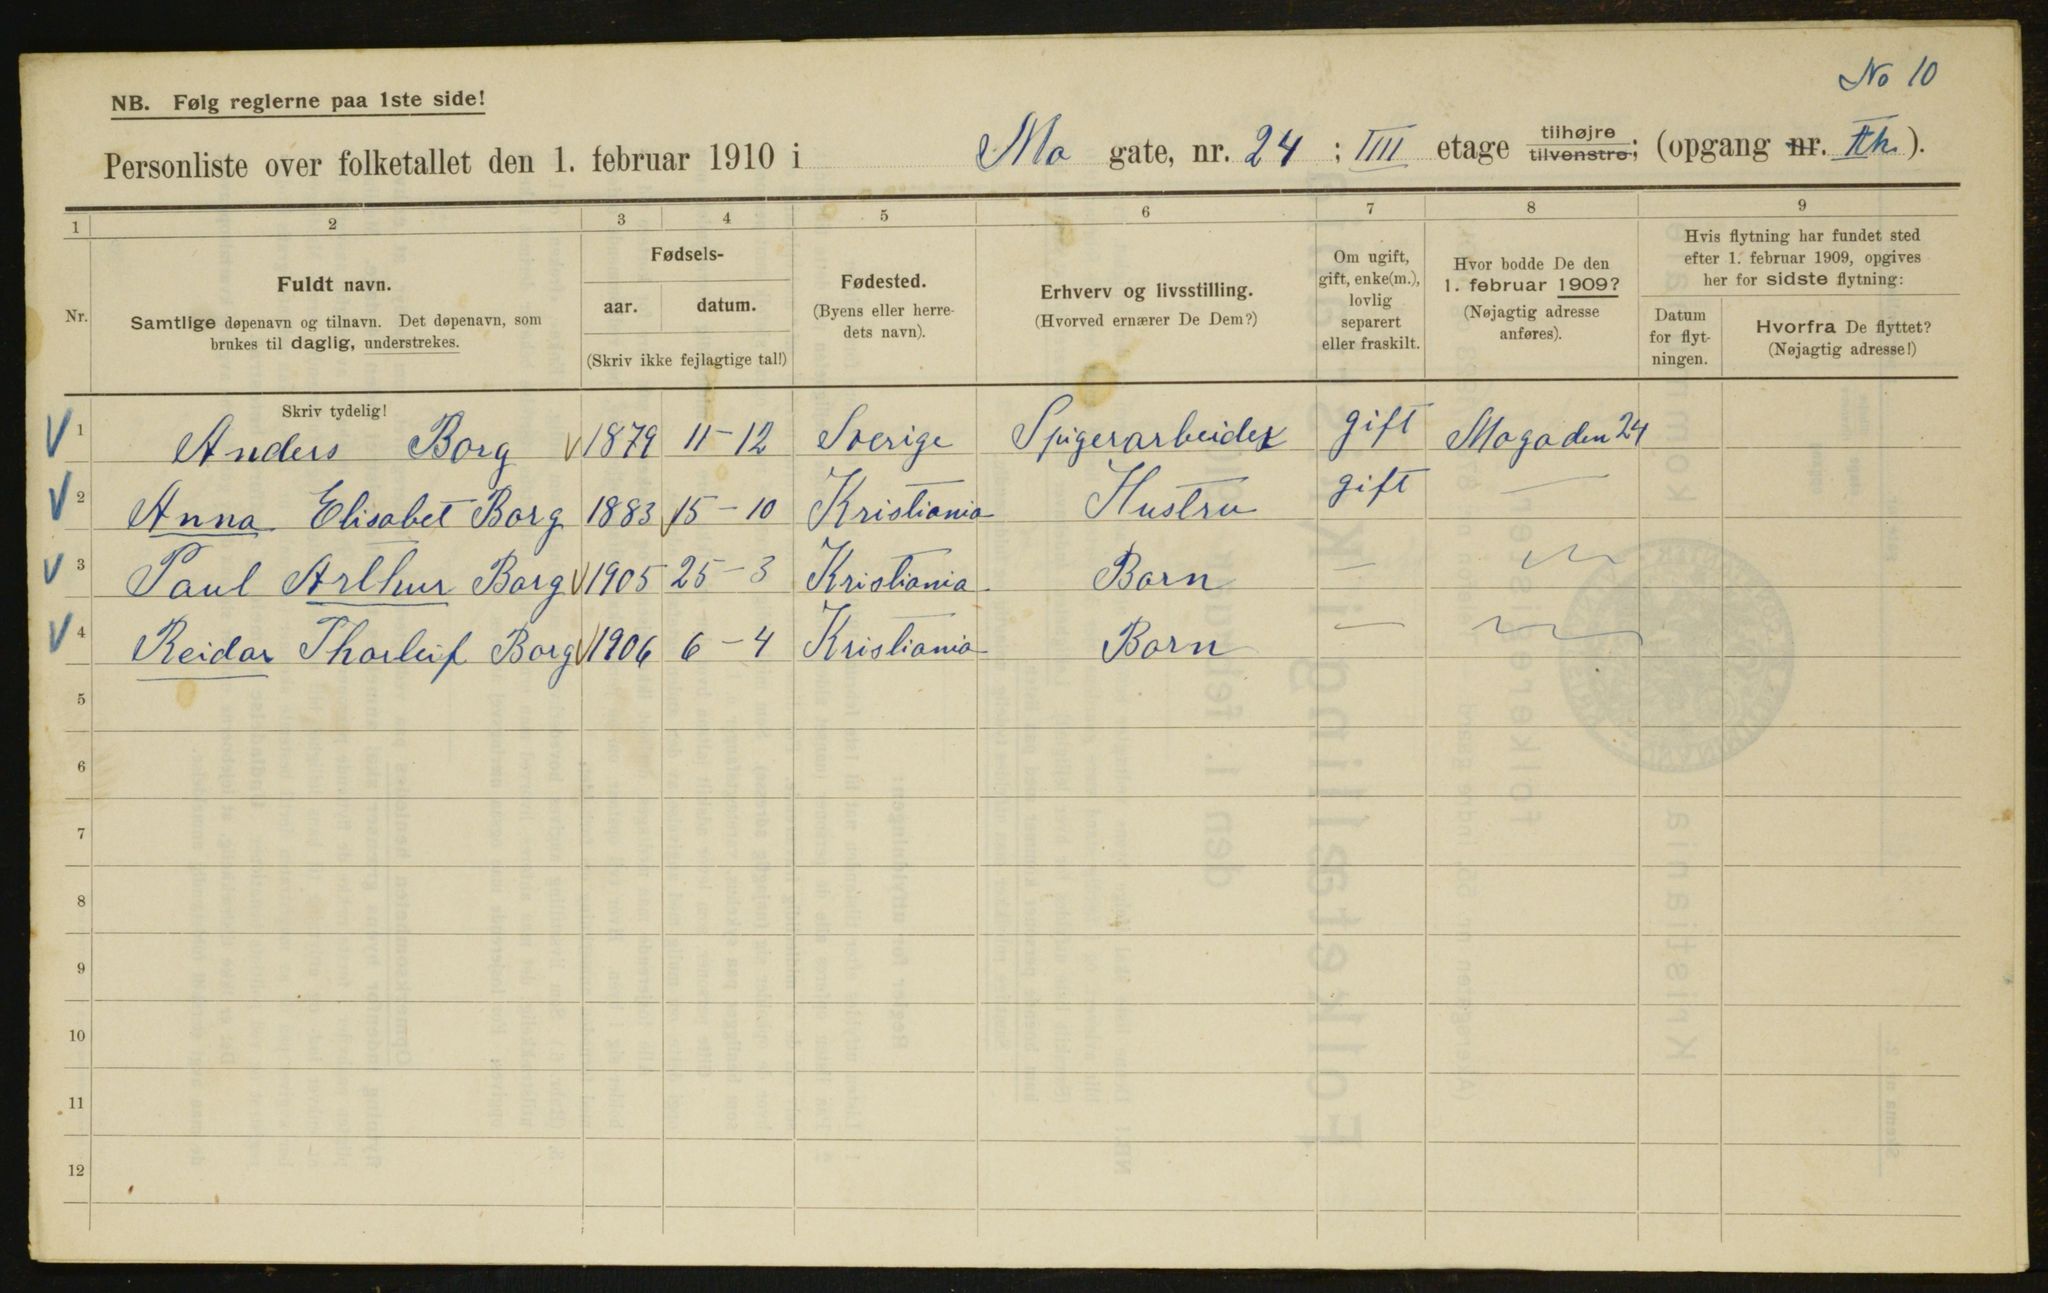 No 10
NB. Følg reglerne paa 1ste side!
Personliste over folketallet den 1. februar 1910 i Mo gate, nr. 24; IIII etage tilhøjre tilvenstre; (opgang nr. ).
1 2 3 4 5 6 7 8 9
Nr.
Fuldt navn.
Samtlige døpenavn og tilnavn. Det døpenavn, som
brukes til daglig, understrekes.
Fødsels-
aar. datum.
(Skriv ikke fejlagtige tal!)
Fødested.
(Byens eller herre-
dets navn).
Erhverv og livsstilling.
(Hvorved ernærer De Dem?)
Om ugift,
gift, enke(m.),
lovlig
separert
eller fraskilt.
Hvor bodde De den
1. februar 1909?
(Nøjagtig adresse
anføres).
Hvis flytning har fundet sted
efter 1. februar 1909, opgives
her for sidste flytning:
Datum
for flyt-
ningen.
Hvorfra De flyttet?
(Nøjagtig adresse!)
Skriv tydelig!
1 Anders Borg 1879 11-12 Sverige Spigerarbeider gift Mogaden 24
2 Anna Elisabet Borg 1883 15-10 Kristiania Hustru gift —
3 Paul Arthur Borg 1905 25-3 Kristiania Barn —
4 Reidar Thorleif Borg 1906 6-4 Kristiania Barn —
5
6
7
8
9
10
11
12